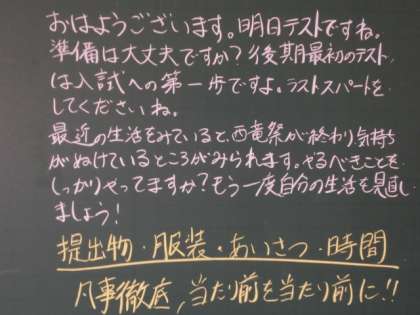 おはようございます。明日テストですね。
準備は大丈夫ですか？後期最初のテスト
は入試への第一歩ですよ。ラストスパートを
してくださいね。
最近の生活をみていると、西竜祭が終わり気持ち
がぬけているところがみられます。やるべきことを
しっかりやってますか？もう一度自分の生活を見直し
ましょう！
提出物・服装・あいさつ・時間
凡事徹底，当たり前を当たり前に！！